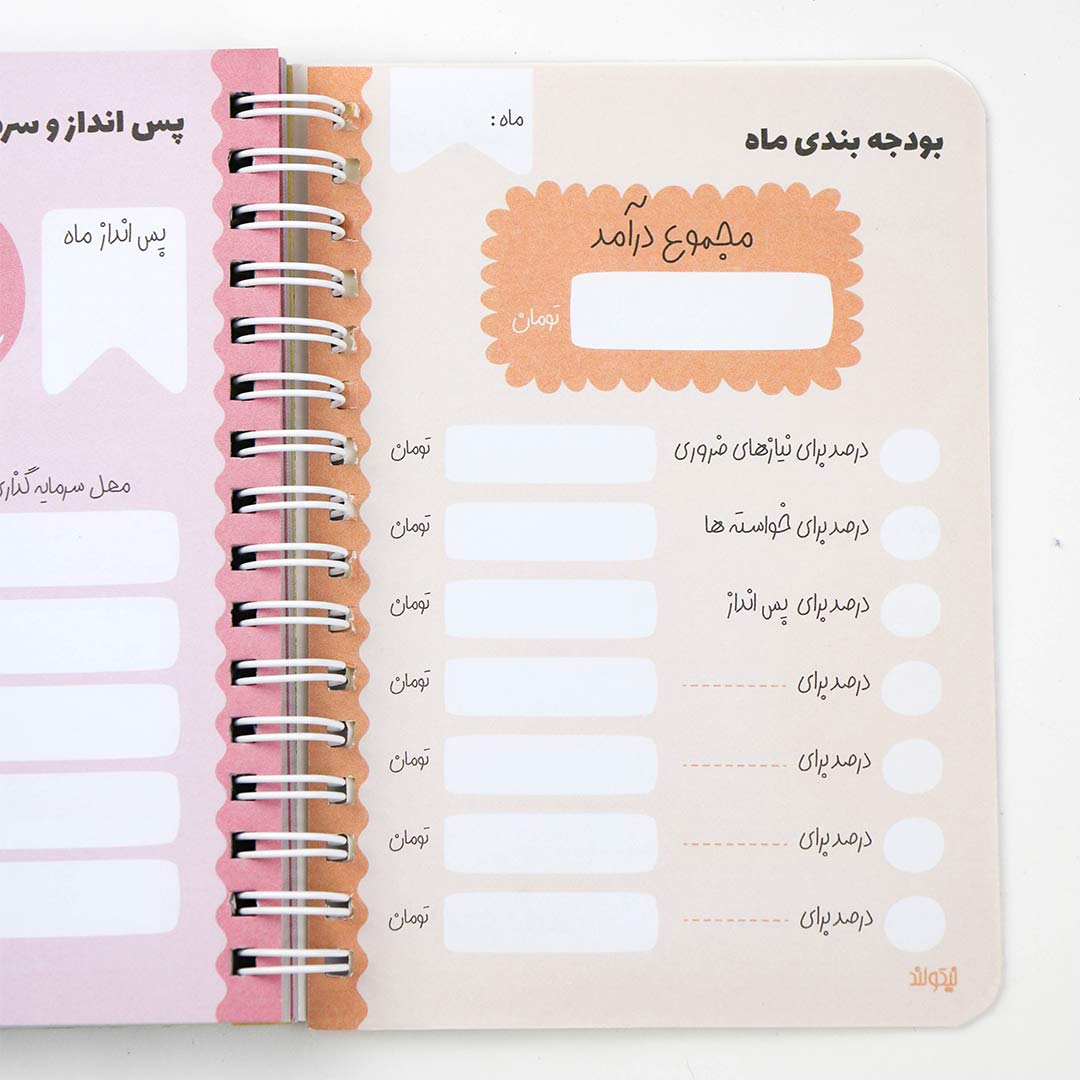 بودجه بندی ماه
ماه :
مجموع درآمد
تومان
درصد برای نیازهای ضروری تومان
درصد برای خواسته ها تومان
درصد برای پس انداز تومان
درصد برای --------- تومان
درصد برای --------- تومان
درصد برای --------- تومان
درصد برای --------- تومان
نیکولند
پس انداز و
پس انداز ماه
محل سرمایه گذاری